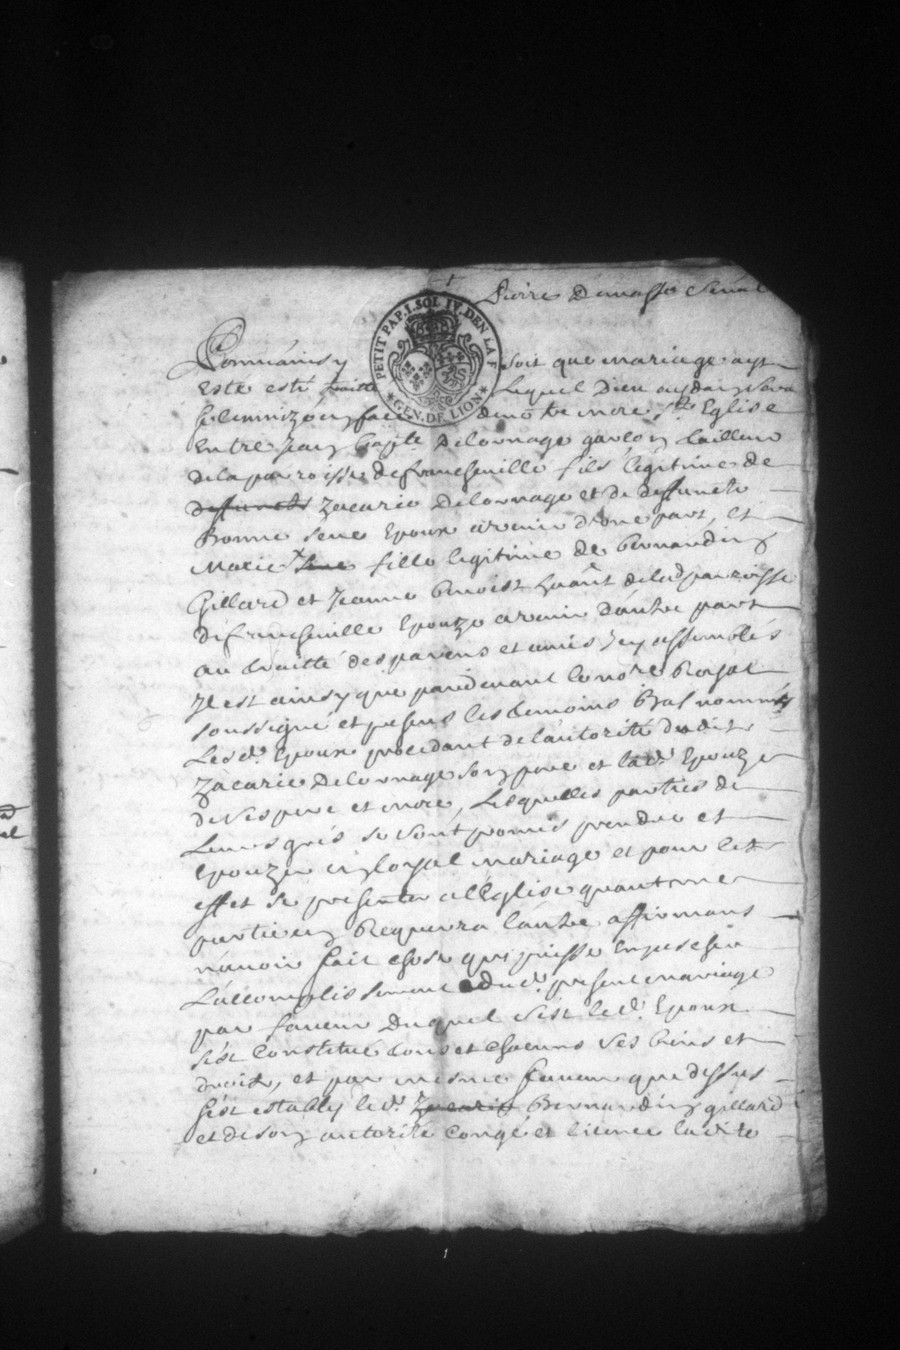 1
Pierre
PETIT PAP. 1. SOL IV. DEN. LA F
* GEN. DE LION *
Comme ainsy soit que mariage ayt
este esté traitté lequel Dieu aydant sera
sollemnizé en face de nõtre mere ste Eglise
Entre Jean bapte Delornage garçon tailleur
de la parroisse de francheville fils legitime de
deffunets Zacarie Delornage et de deffuncte
Bonne Seve Epoux avenir d'une part, et
Marie fille legitime de bernardin
Gillard et Jeanne benoist de lad parroisse
de francheville Epouze avenir d'autre part
au traitté des parens et amis icy assemblés
Il est ainsy que pardevant le nore Royal
soussigné et presens les temoins bas nommés
Les ds Epoux procedant de l'autorité dudit
Zacarie Delornage son pere et lad Epouze
de ses pere et mere, Lesquelles parties de
leurs grés se sont promis prendre et
Epouzer en loyal mariage et pour cet
effet se presenter a l'Eglise quant une
partie en Requerra l'autre affirmans
n'avoir fait chose qui puisse Empescher
L'accomplissement dud present mariage
par faveur Duquel s'est led Epoux
s'est Constitué tous et chacuns ses biens et
droits, et par mesme faveur que dessus
s'est estably led Zacarie Bernardin gillard
et de son autorité Congé et licence ladite
1